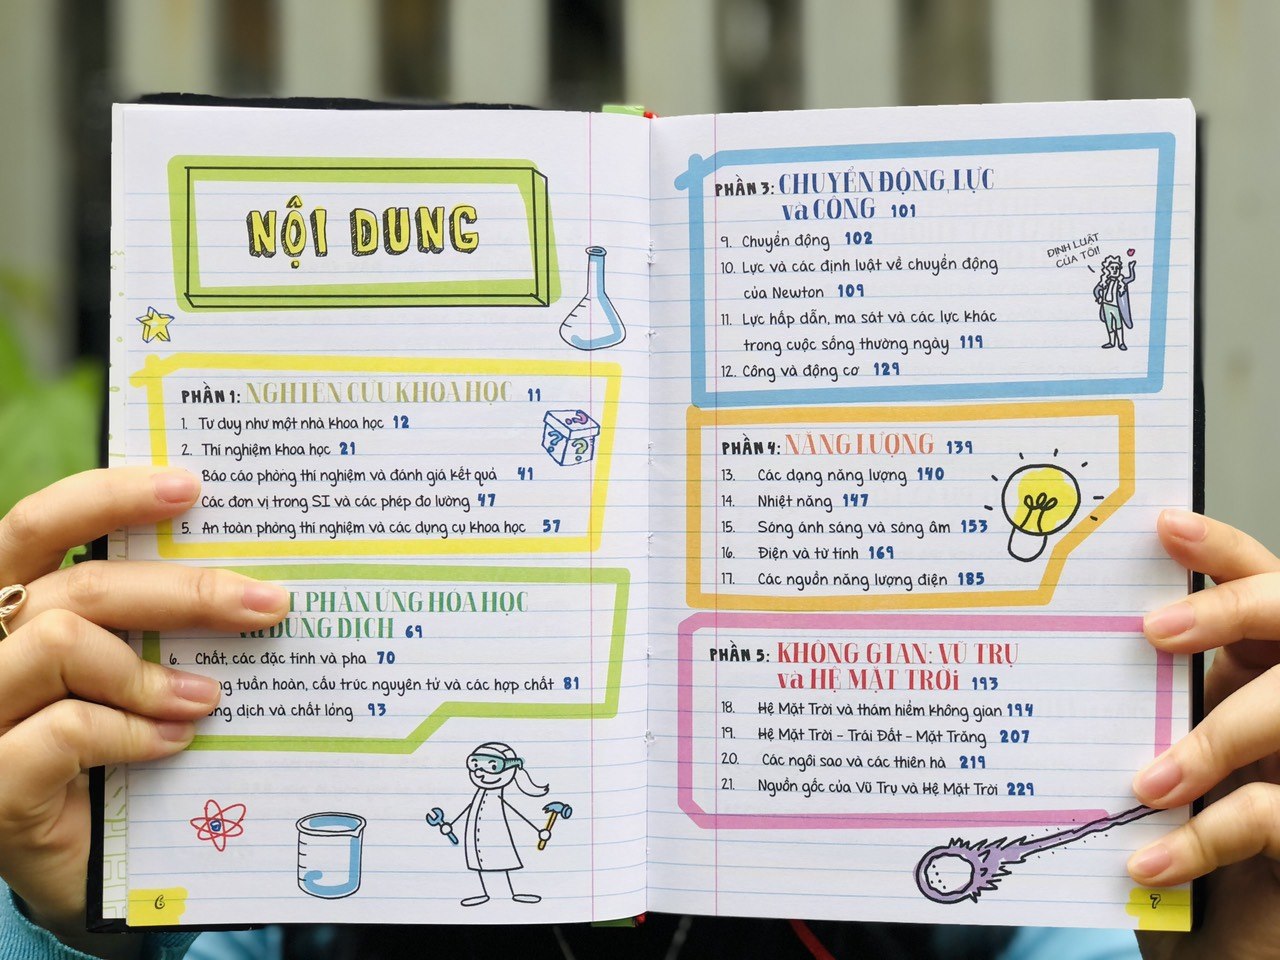 NỘI DUNG
PHẦN 1: NGHIÊN CỨU KHOA HỌC 11
1. Tư duy như một nhà khoa học 12
2. Thí nghiệm khoa học 21
Báo cáo phòng thí nghiệm và đánh giá kết quả 41
Các đơn vị trong SI và các phép đo lường 47
5. An toàn phòng thí nghiệm và các dụng cụ khoa học 57
PHẢN ỨNG HÓA HỌC
và DUNG DỊCH 69
6. Chất, các đặc tính và pha 70
tuần hoàn, cấu trúc nguyên tử và các hợp chất 81
dịch và chất lỏng 93
6
PHẦN 3: CHUYỂN ĐỘNG, LỰC
và CÔNG 101
9. Chuyển động 102
10. Lực và các định luật về chuyển động
của Newton 109
11. Lực hấp dẫn, ma sát và các lực khác
trong cuộc sống thường ngày 119
12. Công và động cơ 129
ĐỊNH LUẬT
CỦA TÔI!
PHẦN 4: NĂNG LƯỢNG 139
13. Các dạng năng lượng 140
14. Nhiệt năng 147
15. Sóng ánh sáng và sóng âm 153
16. Điện và từ tính 169
17. Các nguồn năng lượng điện 185
PHẦN 5: KHÔNG GIAN: VŨ TRỤ
và HỆ MẶT TRỜI 193
18. Hệ Mặt Trời và thám hiểm không gian 194
19. Hệ Mặt Trời – Trái Đất – Mặt Trăng 207
20. Các ngôi sao và các thiên hà 219
21. Nguồn gốc của Vũ Trụ và Hệ Mặt Trời 229
7